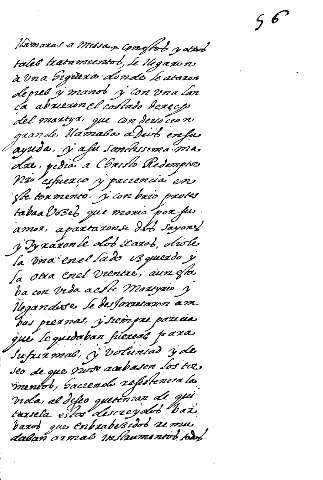 56
llamaras a missa, compostos y otros
tales tratamientos, le llegaron
a una higuera donde le ataron
de pies y manos y con una lan
ca abrieron el costado derecho
del martyr, que con devocion
grande llamaba a Dios en su
ayuda, y a su santissima ma
dre, pedia a Christo Redemptor
Nro esfuerco y paciencia en
este tormento, y con brio protes
taba vozes que moria por su
amor. apartaronse dos sayones
y tyraronle dos xaros, diole
la una en el lado ysquerdo y
la otra en el vientre, aun esta
ba con vida a este Martyrio y
llegandose le desjarretaron am
bas piernas, y siempre parecia
que le quedaban fuerzas para
sufrir mas, y voluntad y de
seo de que no se acabasen los tor
mentos, haciendo resistencia la
vida, al deseo que tenian de qui
tarsela estos descreydos bar
baros que embrabezidos re mu
daban armas instrumentos todos